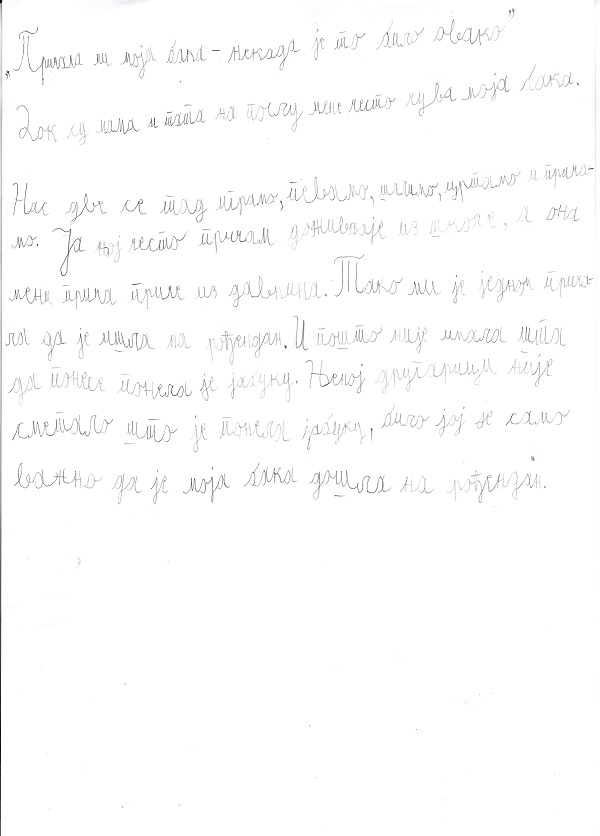 „Причала ми моја бака - некада је то било овако”
Док су мама и тата на послу мене често чува моја бака.
Нас две се тад играмо, певамо, учимо, цртамо и прича-
мо. Ја њој често причам доживљаје из школе, а она
мени прича приче из давнина. Тако ми је једном прича-
ла да је ишла на рођендан. И пошто није имала шта
да понесе понела је јабуку. Њеној другарици није
сметало што је понела јабуку, било јој је само
важно да је моја бака дошла на рођендан.